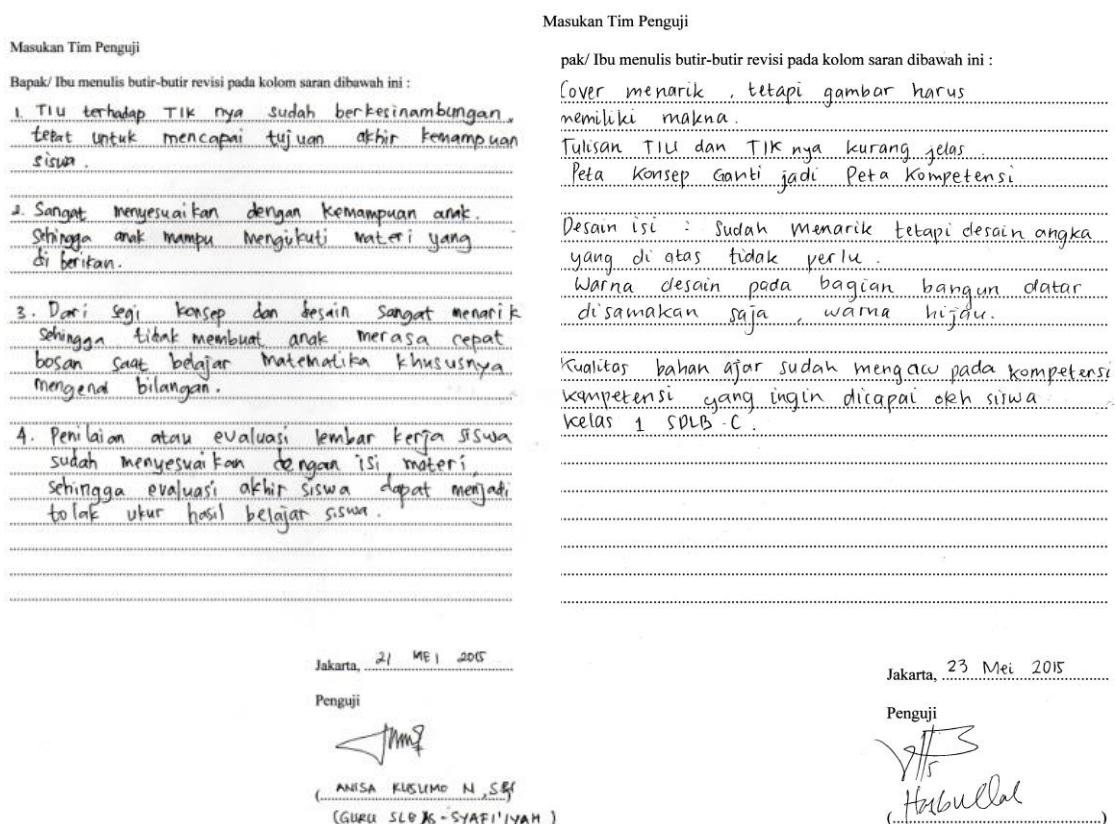 Masukan Tim Penguji
Bapak/ Ibu menulis butir-butir revisi pada kolom saran dibawah ini :
1. TIU terhadap TIK nya sudah berkesinambungan,
tepat untuk mencapai tujuan akhir kemampuan
siswa.
2. Sangat menyesuaikan dengan kemampuan anak.
Sehingga anak mampu mengikuti materi yang
di berikan.
3. Dari segi konsep dan desain sangat menarik
sehingga tidak membuat anak merasa cepat
bosan saat belajar matematika khususnya
mengenal bilangan.
4. Penilaian atau evaluasi lembar kerja siswa
sudah menyesuaikan dengan isi materi,
sehingga evaluasi akhir siswa dapat menjadi
tolak ukur hasil belajar siswa.
Jakarta, 21 MEI 2015
Penguji
( ANISA KUSUMO N ,
(GURU SLB AS-SYAFI'IYAH )
Masukan Tim Penguji
pak/ Ibu menulis butir-butir revisi pada kolom saran dibawah ini :
Cover menarik , tetapi gambar harus
memiliki makna.
Tulisan TIU dan TIK nya kurang jelas.
Peta Konsep Ganti jadi Peta Kompetensi
Desain isi : Sudah menarik tetapi desain angka
yang di atas tidak perlu.
Warna desain pada bagian bangun datar
disamakan saja , warna hijau.
Kualitas bahan ajar sudah mengacu pada kompetensi
kompetensi yang ingin dicapai oleh siswa
kelas 1 SDLB-C.
Jakarta, 23 Mei 2015
Penguji
( Hasbullah )